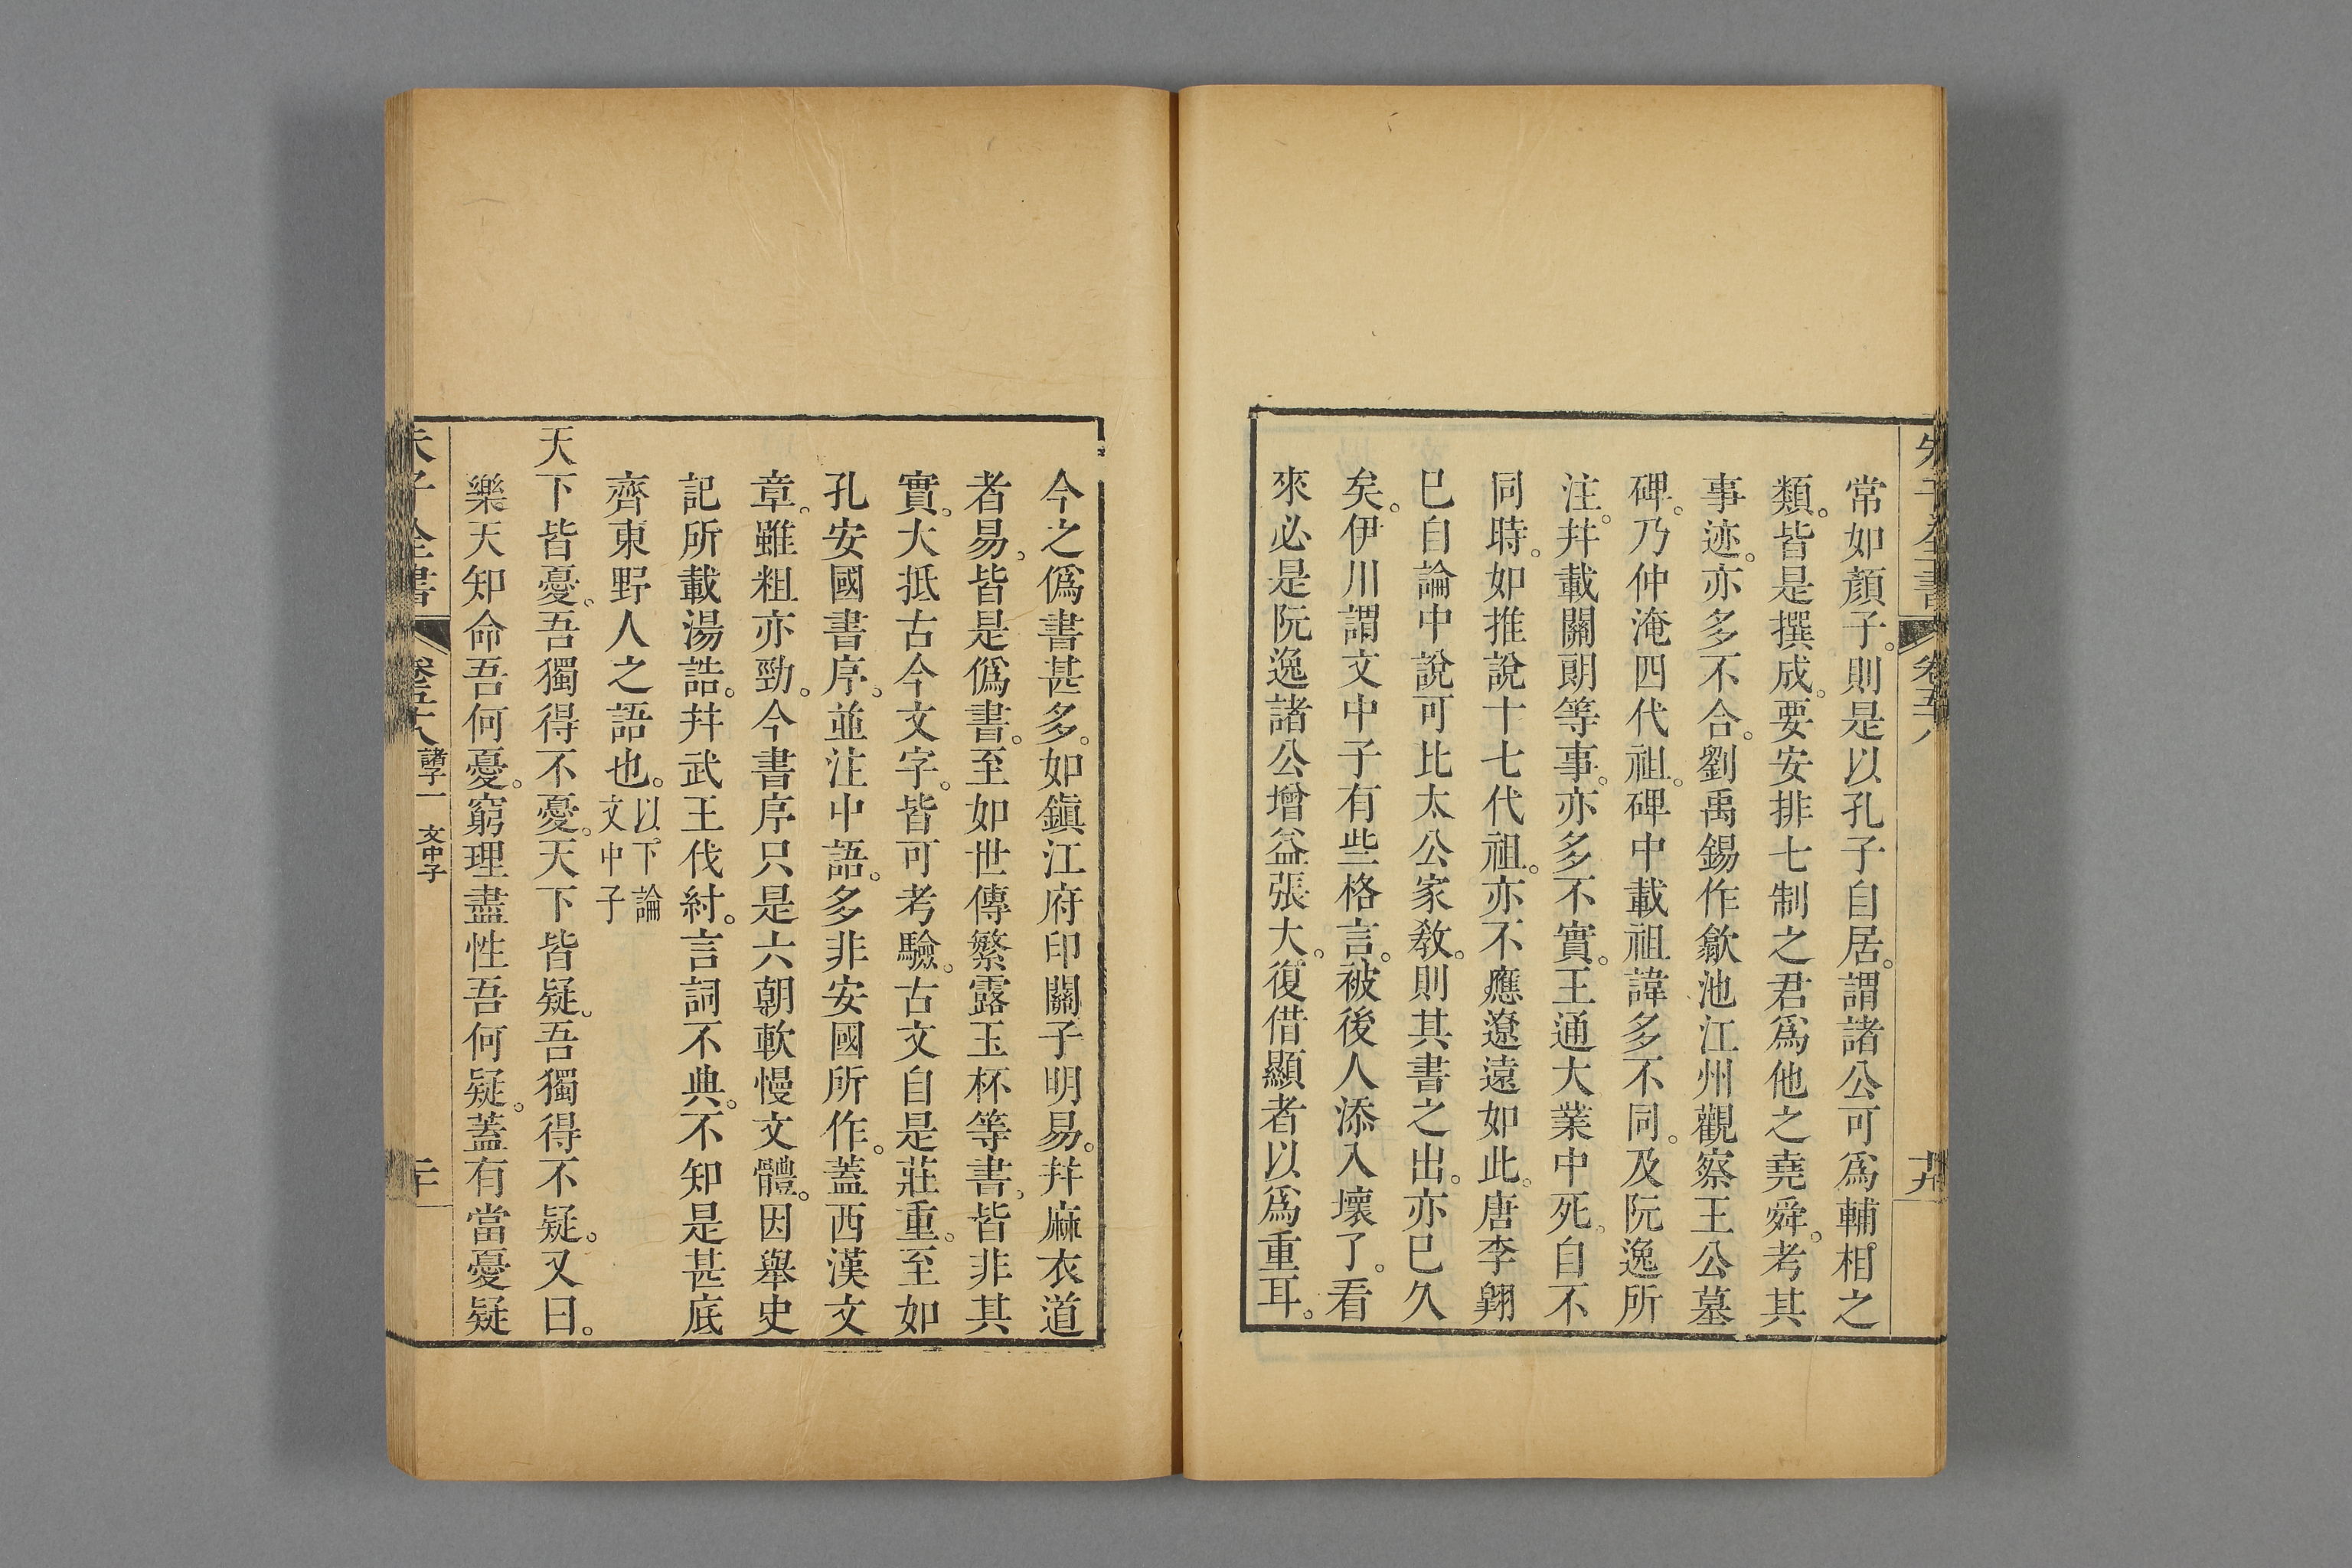 朱子全書 卷五十八 十九
常如顏子。則是以孔子自居。謂諸公可爲輔相之
類。皆是撰成。要安排七制之君爲他之堯舜。考其
事迹。亦多不合。劉禹錫作歙池江州觀察王公墓
碑。乃仲淹四代祖。碑中載祖諱多不同。及阮逸所
注。幷載關朗等事。亦多不實。王通大業中死。自不
同時。如推說十七代祖。亦不應遼遠如此。唐李翺
已自論中說可比太公家敎。則其書之出。亦已久
矣。伊川謂文中子有些格言。被後人添入壞了。看
來必是阮逸諸公增益張大。復借顯者以爲重耳。
今之僞書甚多。如鎭江府印關子明易。幷麻衣道
者易。皆是僞書。至如世傳繁露玉杯等書。皆非其
實。大抵古今文字。皆可考驗。古文自是莊重。至如
孔安國書序。並注中語。多非安國所作。蓋西漢文
章。雖粗亦勁。今書序只是六朝軟慢文體。因舉史
記所載湯誥。幷武王伐紂。言詞不典。不知是甚底
齊東野人之語也。以下論文中子
天下皆憂。吾獨得不憂。天下皆疑。吾獨得不疑。又曰。
樂天知命吾何憂。窮理盡性吾何疑。蓋有當憂疑
朱子全書 卷五十八 諸子一 文中子 二十